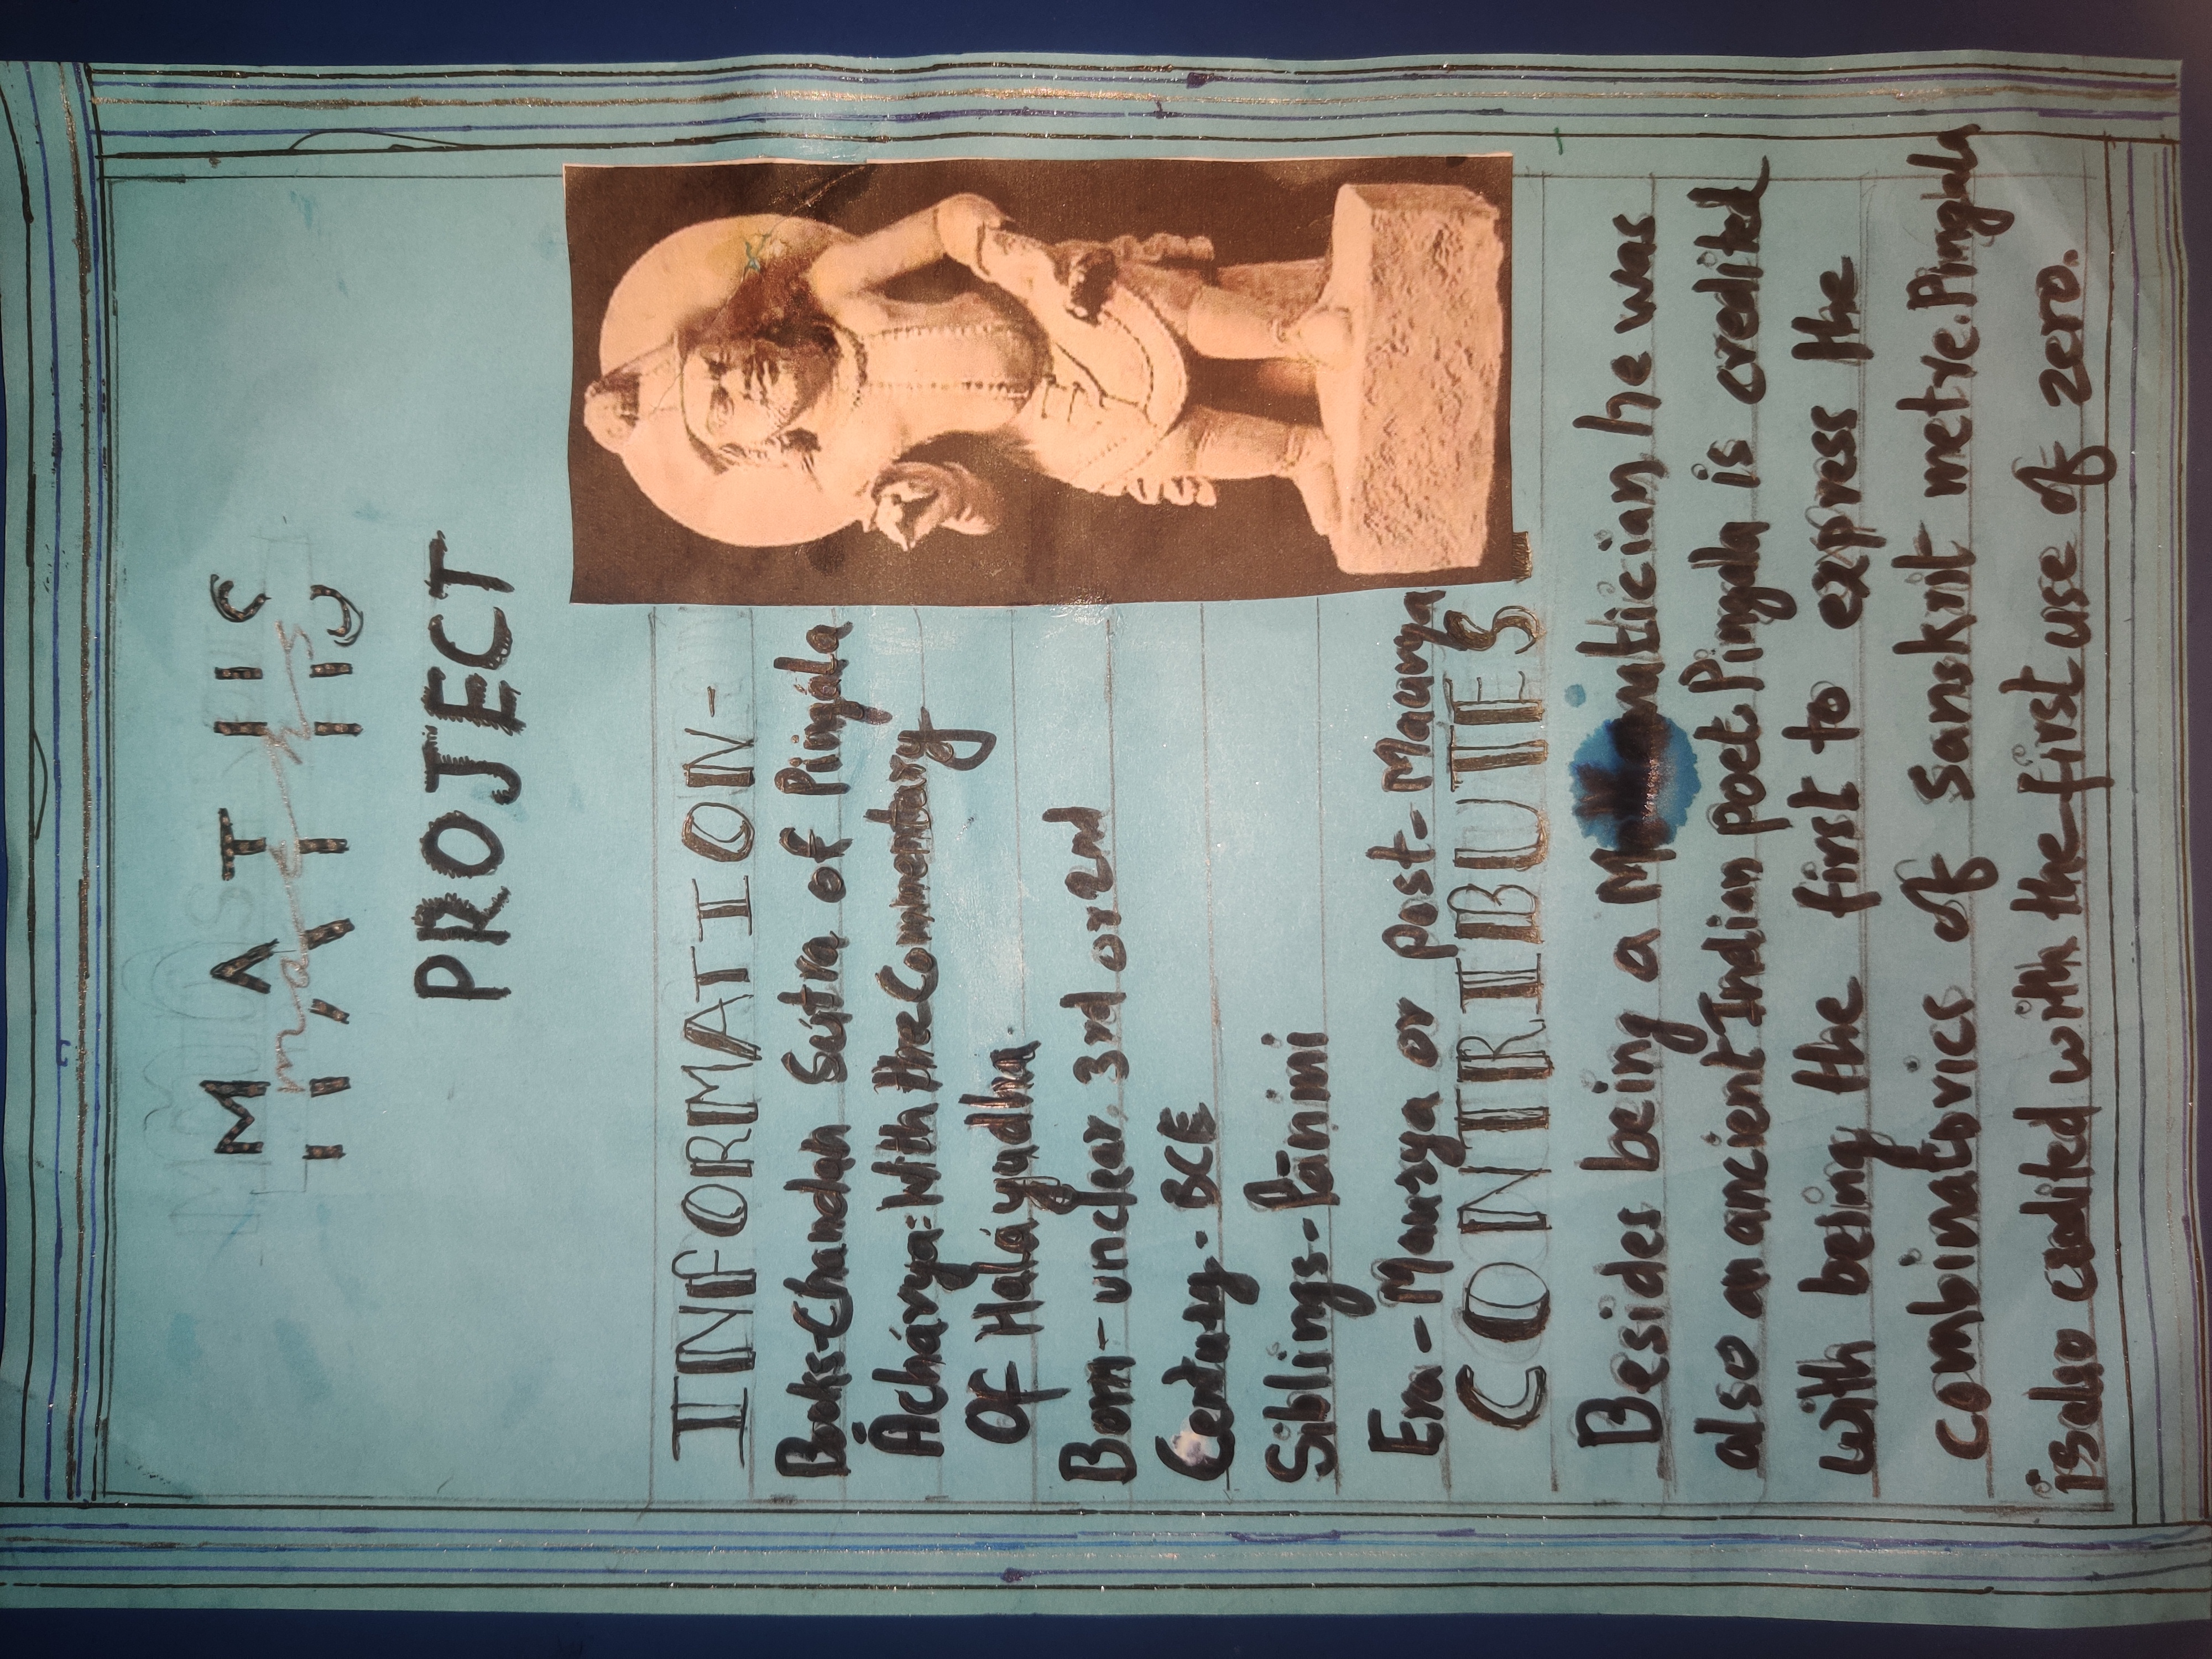 MATHS
maths
PROJECT
INFORMATION-
Books-Chandah Sútra of Piingála
Áchárya: With the Commentary
Of Haláyudha.
Born- unclear, 3rd or 2nd
Century- BCE
Siblings- Pāṇini
Era- Maurya or post- Maurya
CONTRIBUTES
Besides being a Mathematician, he was
also an ancient Indian poet. Pingala is credited
with being the first to express the
combinatorics of Sanskrit metre. Pingala
is also credited with the first use of zero.